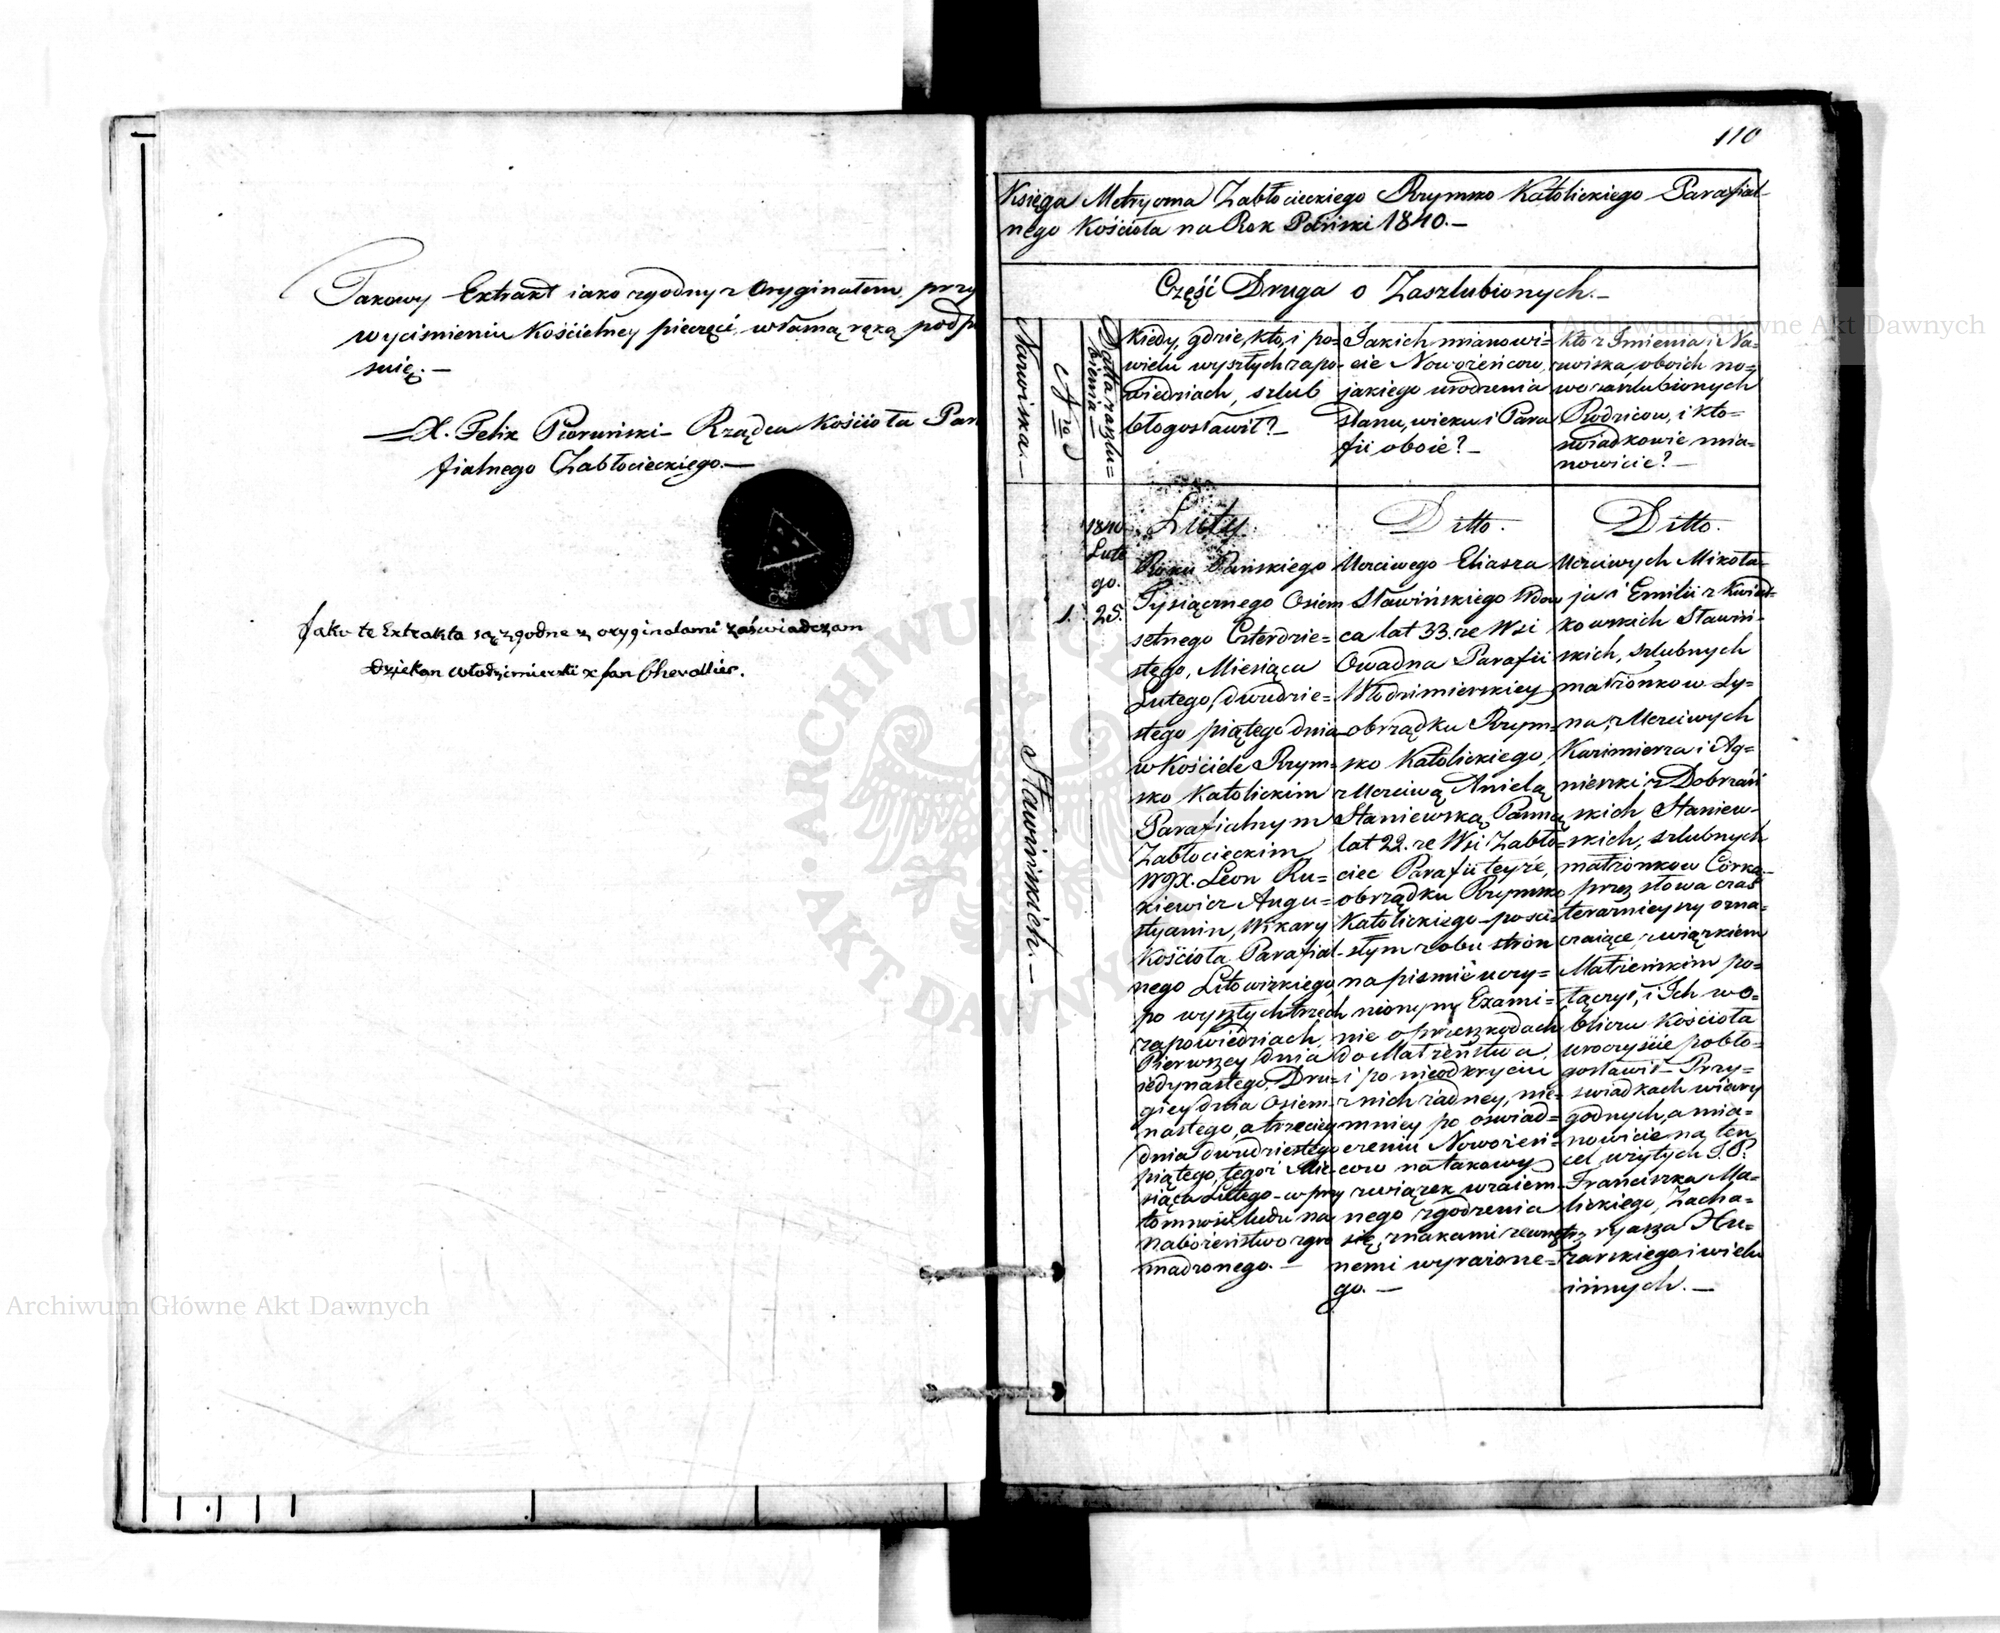 Takowy Extrakt iako zgodny z Oryginałem, przy
wyciśnieniu Kościelney pieczęci, własną ręką podpi
suię. —
X. Felix Pioruński Rządca Kościoła Par
fialnego Zabłocieckiego. —
Jako te Extrakta są zgodne z oryginałami zaświadczam
Dziekan Włodzimierski x Jan Chevallier.
110
Księga Metryczna Zabłocieckiego Rzymsko Katolickiego Parafial
nego Kościoła na Rok Pański 1840. —
Część Druga o Zaszlubionych. —
Nazwiska. —
N ro
Datta zaszlu=
bienia —
Kiedy, gdzie, kto, i po=
wielu wyszłych zapo=
wiedziach, szlub
błogosławił? —
Jakich mianowi=
cie Nowożeńcow,
jakiego urodzenia
stanu, wieku i Para
fii oboie? —
Kto z Imienia i Na=
zwiska, oboich no=
wozaszlubionych
Rodzicow, i kto=
swiadkowie mia=
nowicie? —
Sławińskich. —
1.
1840
Lute
go.
25.
Luty
Roku Pańskiego
Tysiącznego Osiem
setnego Czterdzie=
stego, Miesiąca
Lutego, dwudzie=
stego piątego dnia
w Kościele Rzym=
sko Katolickim
Parafialnym
Zabłocieckim,
WJX. Leon Ru=
kiewicz Augu=
styanin, Wikary
Kościoła Parafial
nego Litowizkiego,
po wyszłych trzech
zapowiedziach,
Pierwszey dnia
iedynastego, Dru=
giey dnia Osiem=
nastego, a trzeciey
dnia dwudziestego
piątego, tegoż Mie=
siąca Lutego — w przy
tomności ludu na
nabożeństwo zgro
madzonego. —
Ditto.
Uczciwego Eliasza
Sławińskiego Wdow
ca lat 33. ze Wsi
Owadna Parafii
Włodzimierskiey
obrządku Rzym=
sko Katolickiego,
z Uczciwą Anielą
Staniewską Panną
lat 22. ze Wsi Zabło=
ciec Parafii teyże,
obrządku Rzymsko
Katolickiego — po sci=
słym z obu stron
na pismie uczy=
nionym Exami=
nie o przeszkodach
do Małżeństwa,
i po nieodkryciu
z nich żadney, nie=
mniey po oswiad=
czeniu Nowożeń=
cow na takowy
związek wzaiem=
nego zgodzenia
się, znakami zewnętrz
nemi wyrażone=
go. —
Ditto.
Uczciwych Mikoła=
ja i Emilii z Kwiat=
kowskich Sławiń=
skich, szlubnych
małżonkow Sy=
na, z Uczciwych
Kazimierza i Ag=
nieszki z Dobrzań
skich Staniew=
skich, szlubnych
małżonkow Córką —
przez słowa czas
teraznieyszy ozna=
czaiące, związkiem
Małżeńskim po=
łączył, i Ich w o=
bliczu Kościoła
uroczyście pobło=
gosławił — Przy=
swiadkach wiary
godnych, a mia=
nowicie na ten
cel wziętych J. P.
Franciszka Ma=
lickiego, Zacha=
ryasza Hu=
zarskiego i wielu
innych. —